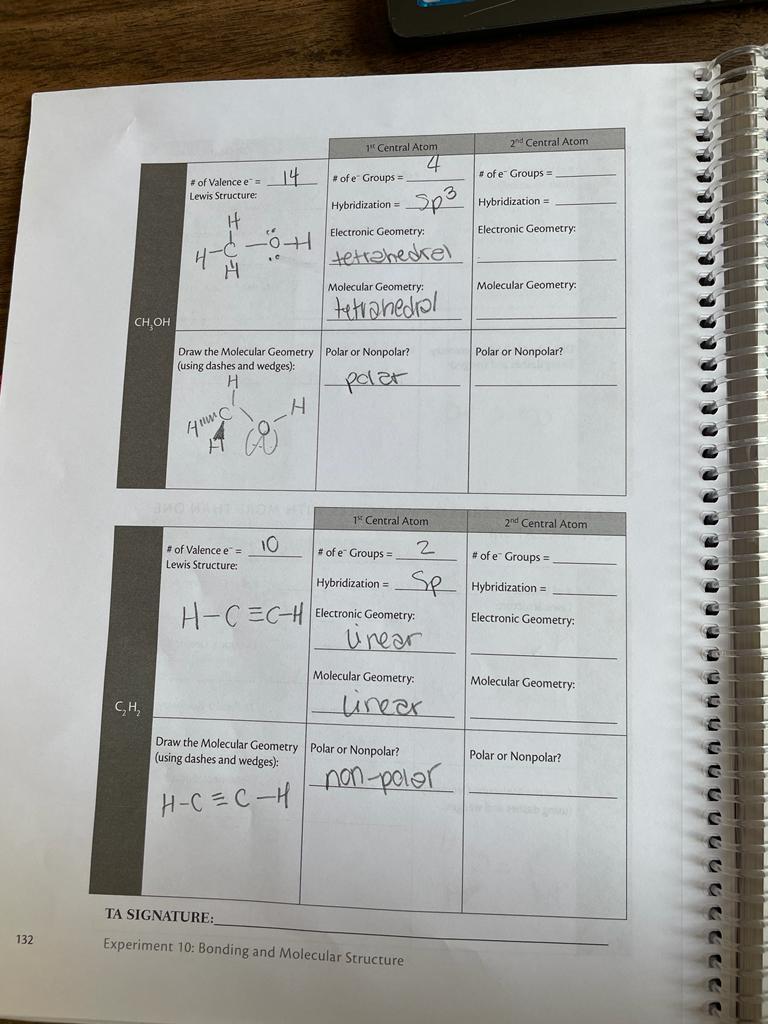 1st Central Atom
2nd Central Atom
CH3OH
# of Valence e⁻ = 14
Lewis Structure:
H
H-C-O-H
H
# of e⁻ Groups = 4
Hybridization = Sp³
Electronic Geometry:
tetrahedrel
Molecular Geometry:
tetrahedral
# of e⁻ Groups =
Hybridization =
Electronic Geometry:
Molecular Geometry:
Draw the Molecular Geometry
(using dashes and wedges):
H
H C O H
H
Polar or Nonpolar?
polar
Polar or Nonpolar?
1st Central Atom
2nd Central Atom
C2H2
# of Valence e⁻ = 10
Lewis Structure:
H-C≡C-H
# of e⁻ Groups = 2
Hybridization = Sp
Electronic Geometry:
linear
Molecular Geometry:
linear
# of e⁻ Groups =
Hybridization =
Electronic Geometry:
Molecular Geometry:
Draw the Molecular Geometry
(using dashes and wedges):
H-C≡C-H
Polar or Nonpolar?
non-polar
Polar or Nonpolar?
TA SIGNATURE:
132
Experiment 10: Bonding and Molecular Structure